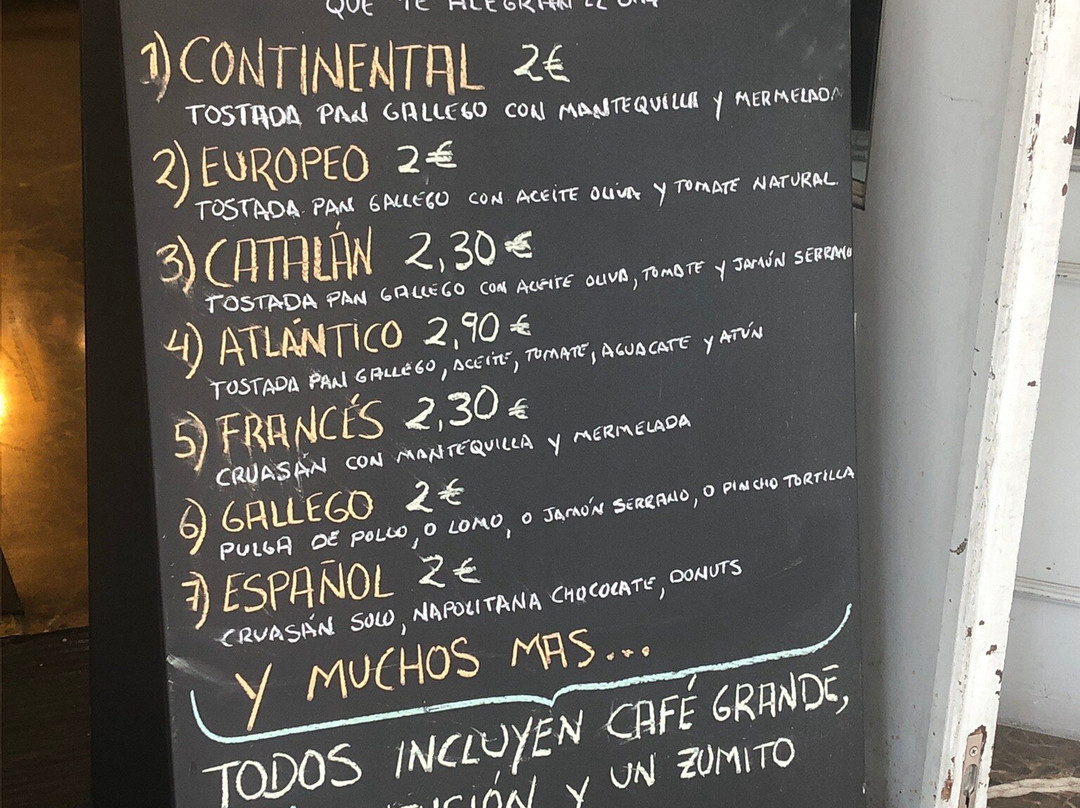 QUE TE ALEGRAN EL DIA
1) CONTINENTAL 2€
TOSTADA PAN GALLEGO CON MANTEQUILLA Y MERMELADA
2) EUROPEO 2€
TOSTADA PAN GALLEGO CON ACEITE OLIVA Y TOMATE NATURAL.
3) CATALÁN 2,30€
TOSTADA PAN GALLEGO CON ACEITE OLIVA, TOMATE Y JAMÓN SERRANO
4) ATLÁNTICO 2,90€
TOSTADA PAN GALLEGO, ACEITE, TOMATE, AGUACATE Y ATÚN
5) FRANCÉS 2,30€
CRUASÁN CON MANTEQUILLA Y MERMELADA
6) GALLEGO 2€
PULGA DE POLLO, O LOMO, O JAMÓN SERRANO, O PINCHO TORTILLA
7) ESPAÑOL 2€
CRUASÁN SOLO, NAPOLITANA CHOCOLATE, DONUTS
Y MUCHOS MAS...
TODOS INCLUYEN CAFÉ GRANDE,
Y UN ZUMITO